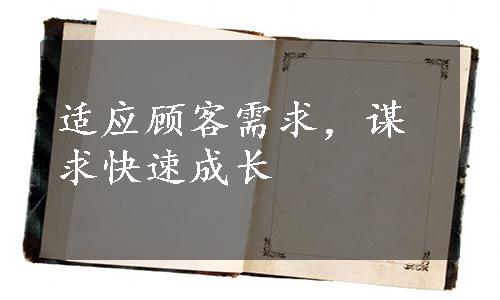 适应顾客需求，谋
求快速成长